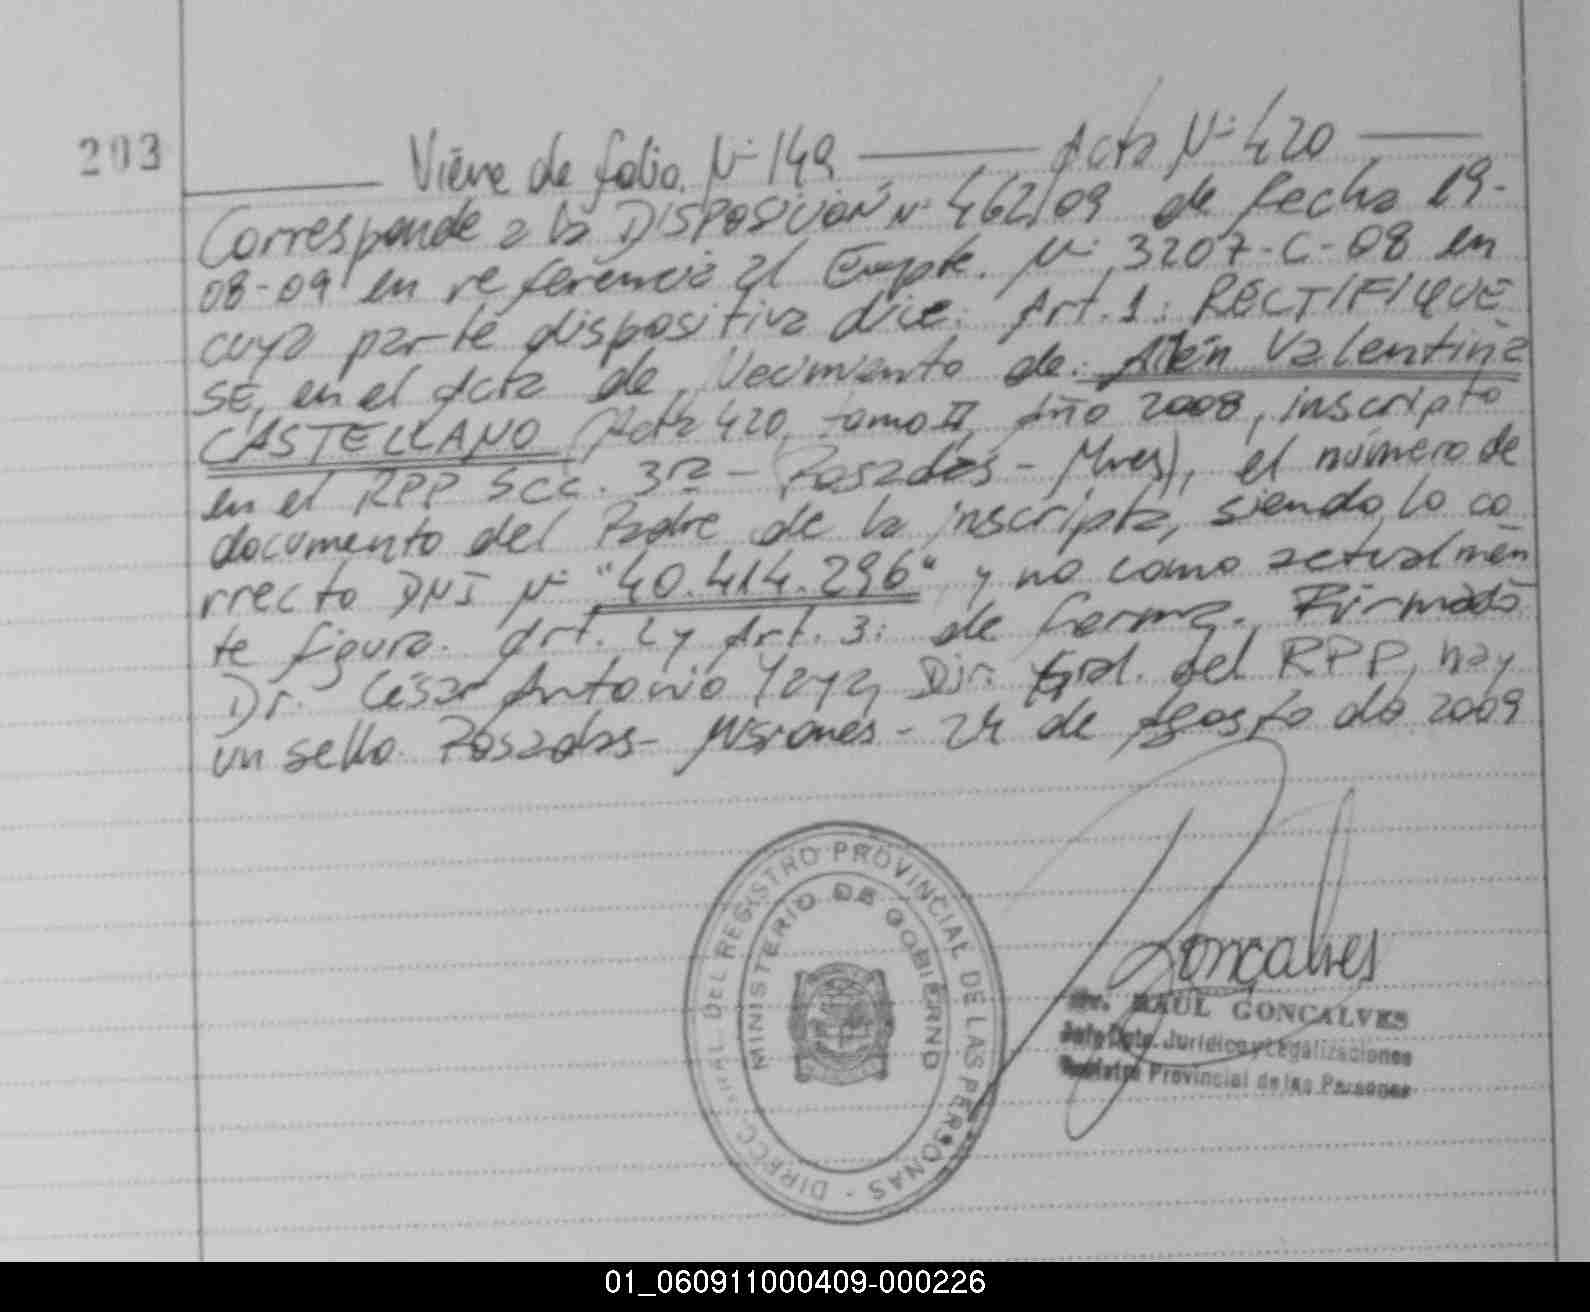 203
Viene de folio N° 149 — Acta N° 420 —
Corresponde a la DISPOSICIÓN N° 462/09 de fecha 19-
08-09 en referencia al Expte. N° 3207-C-08 en
cuya parte dispositiva dice: Art. 1: RECTIFIQUE
SE, en el Acta de Nacimiento de: Ailén Valentina
CASTELLANO (Acta 420, tomo II, Año 2008, inscripto
en el RPP Scc. 3ra - Posadas - Mnes), el número de
documento del Padre de la inscripta, siendo lo co
rrecto DNI N° "40.414.296" y no como actualmen
te figura. Art. 2 y Art. 3: de forma. Firmado
Dr. César Antonio Yaya, Dir. Gral. del RPP, hay
un sello. Posadas - Misiones - 24 de Agosto de 2009
DIRECC. GRAL. DEL REGISTRO PROVINCIAL DE LAS PERSONAS -
MINISTERIO DE GOBIERNO
Goncalves
Dr. RAUL GONCALVES
Jefe Dpto. Jurídico y Legalizaciones
Registro Provincial de las Personas
01_060911000409-000226